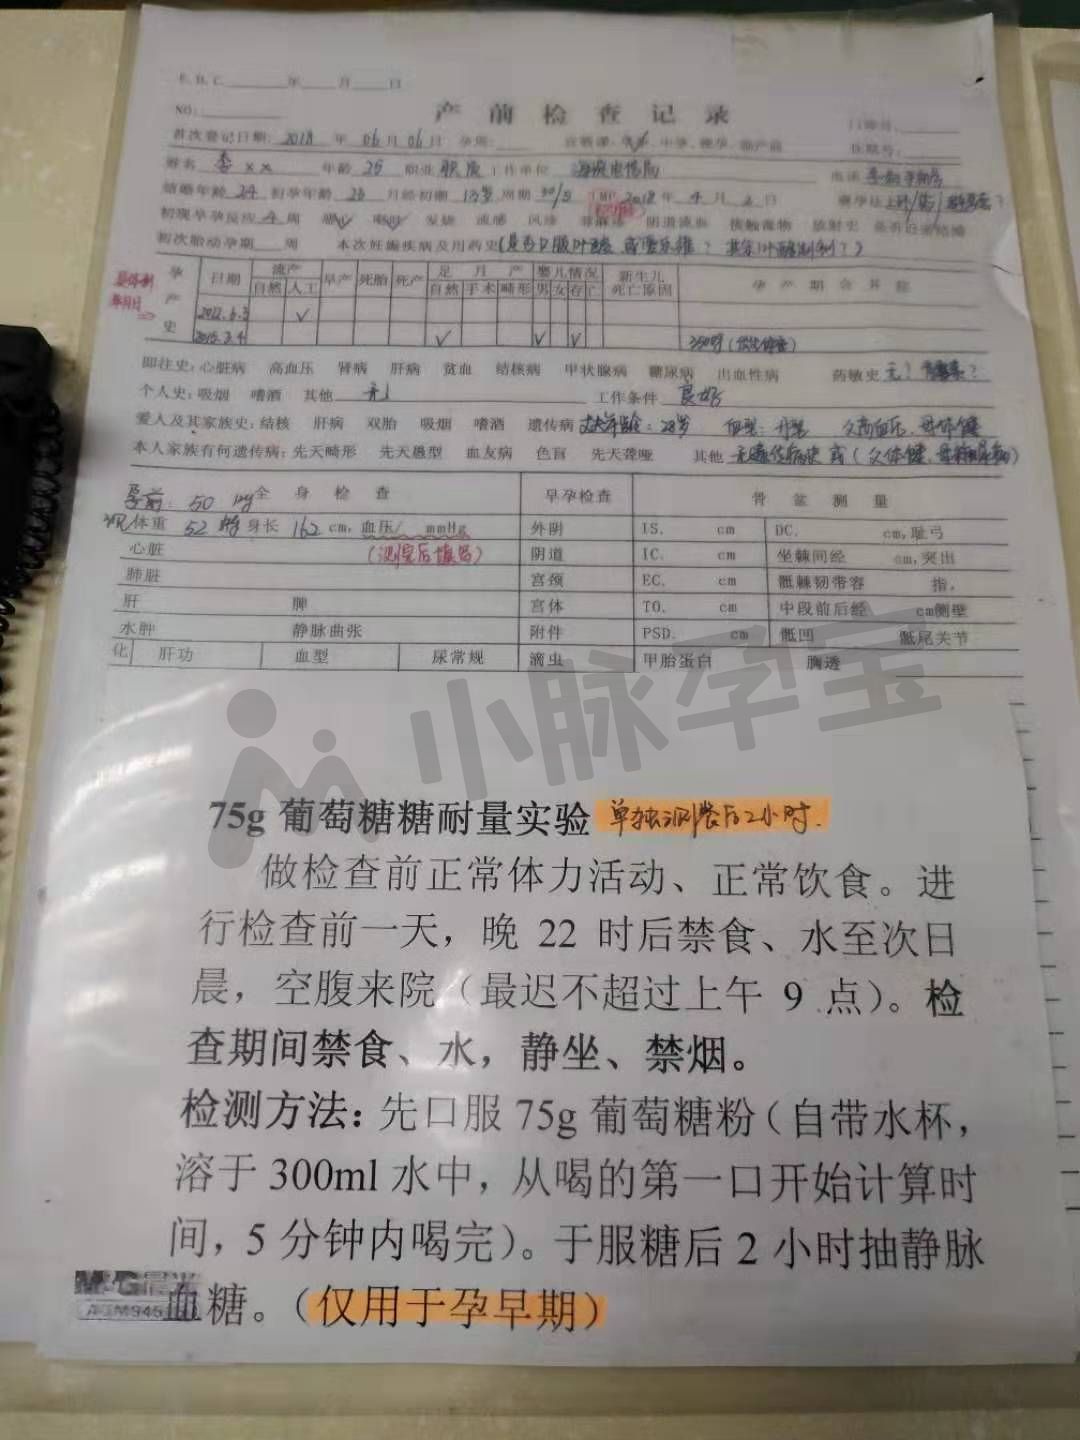 E.D.C.____年____月____日
NO:
产前检查记录
门诊号:
首次登记日期: 2018 年 06 月 06 日 孕周:
住院号:
姓名 李xx 年龄 25 职业 职员 工作单位 海波电信局
结婚年龄 24 初孕年龄 23 月经初潮 13岁 周期 30/5 LMP 2018 年 4 月 2 日
初现早孕反应 4 周 恶心 呕吐 发烧 流感 风疹 荨麻疹 阴道流血 接触毒物 放射史 是否近亲结婚
初次胎动孕期 周 本次妊娠疾病及用药史(是否口服叶酸
孕产史 日期 流产 早产 死胎 死产 足月产 婴儿情况 新生儿死亡原因 孕产期合并症
自然 人工 自然 手术 畸形 男 女 存 亡
2012.6.3 √
2015.3.4 √ √ √
即往史:心脏病 高血压 肾病 肝病 贫血 结核病 甲状腺病 糖尿病 出血性病 药敏史 无?
个人史:吸烟 嗜酒 其他 无 工作条件 良好
爱人及其家族史:结核 肝病 双胎 吸烟 嗜酒 遗传病 丈夫年龄:28岁 血型: 父高血压、母体健
本人家族有何遗传病:先天畸形 先天愚型 血友病 色盲 先天聋哑 其他 无遗传病史 或(父体健、母糖尿病)
孕前: 50 kg 全身检查 早孕检查 骨盆测量
现体重 52 身长 162 cm, 血压/ mmHg 外阴 IS. cm DC. cm,耻弓
心脏 (测完后填写) 阴道 IC. cm 坐棘间经 cm,突出
肺脏 宫颈 EC. cm 骶棘韧带容 指,
肝 脾 宫体 TO. cm 中段前后经 cm侧壁
水肿 静脉曲张 附件 PSD. cm 骶凹 骶尾关节
化 肝功 血型 尿常规 滴虫 甲胎蛋白 胸透
小脉孕宝
75g 葡萄糖糖耐量实验 单独测餐后2小时.
做检查前正常体力活动、正常饮食。进
行检查前一天,晚 22 时后禁食、水至次日
晨,空腹来院(最迟不超过上午 9 点)。检
查期间禁食、水,静坐、禁烟。
检测方法:先口服 75g 葡萄糖粉(自带水杯,
溶于 300ml 水中,从喝的第一口开始计算时
间,5 分钟内喝完)。于服糖后 2 小时抽静脉
血糖。(仅用于孕早期)
M&G晨光